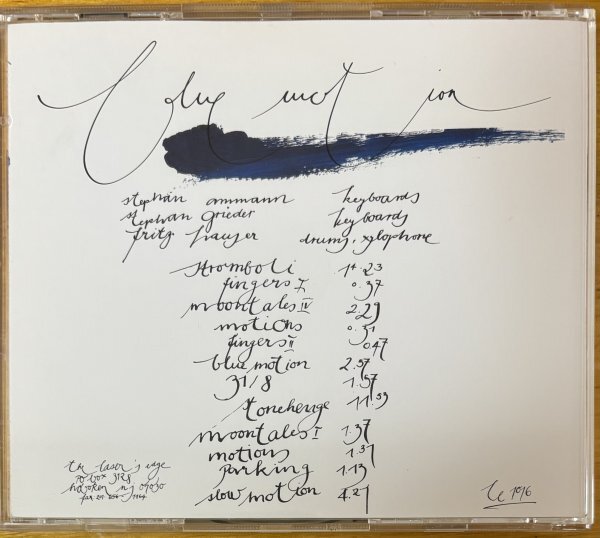 blue motion
stephan ammann keyboards
stephan grieder keyboards
fritz hauser drums, xylophone
stromboli 14.23
fingers I 0.37
moontales IV 2.29
motions 0.51
fingers II 0.47
blue motion 2.57
31/8 1.57
stonehenge 11.53
moontales I 1.37
motions 1.37
parking 1.13
slow motion 4.27
the laser's edge
po box 3128
hoboken nj 07030
fax 201
le 1016